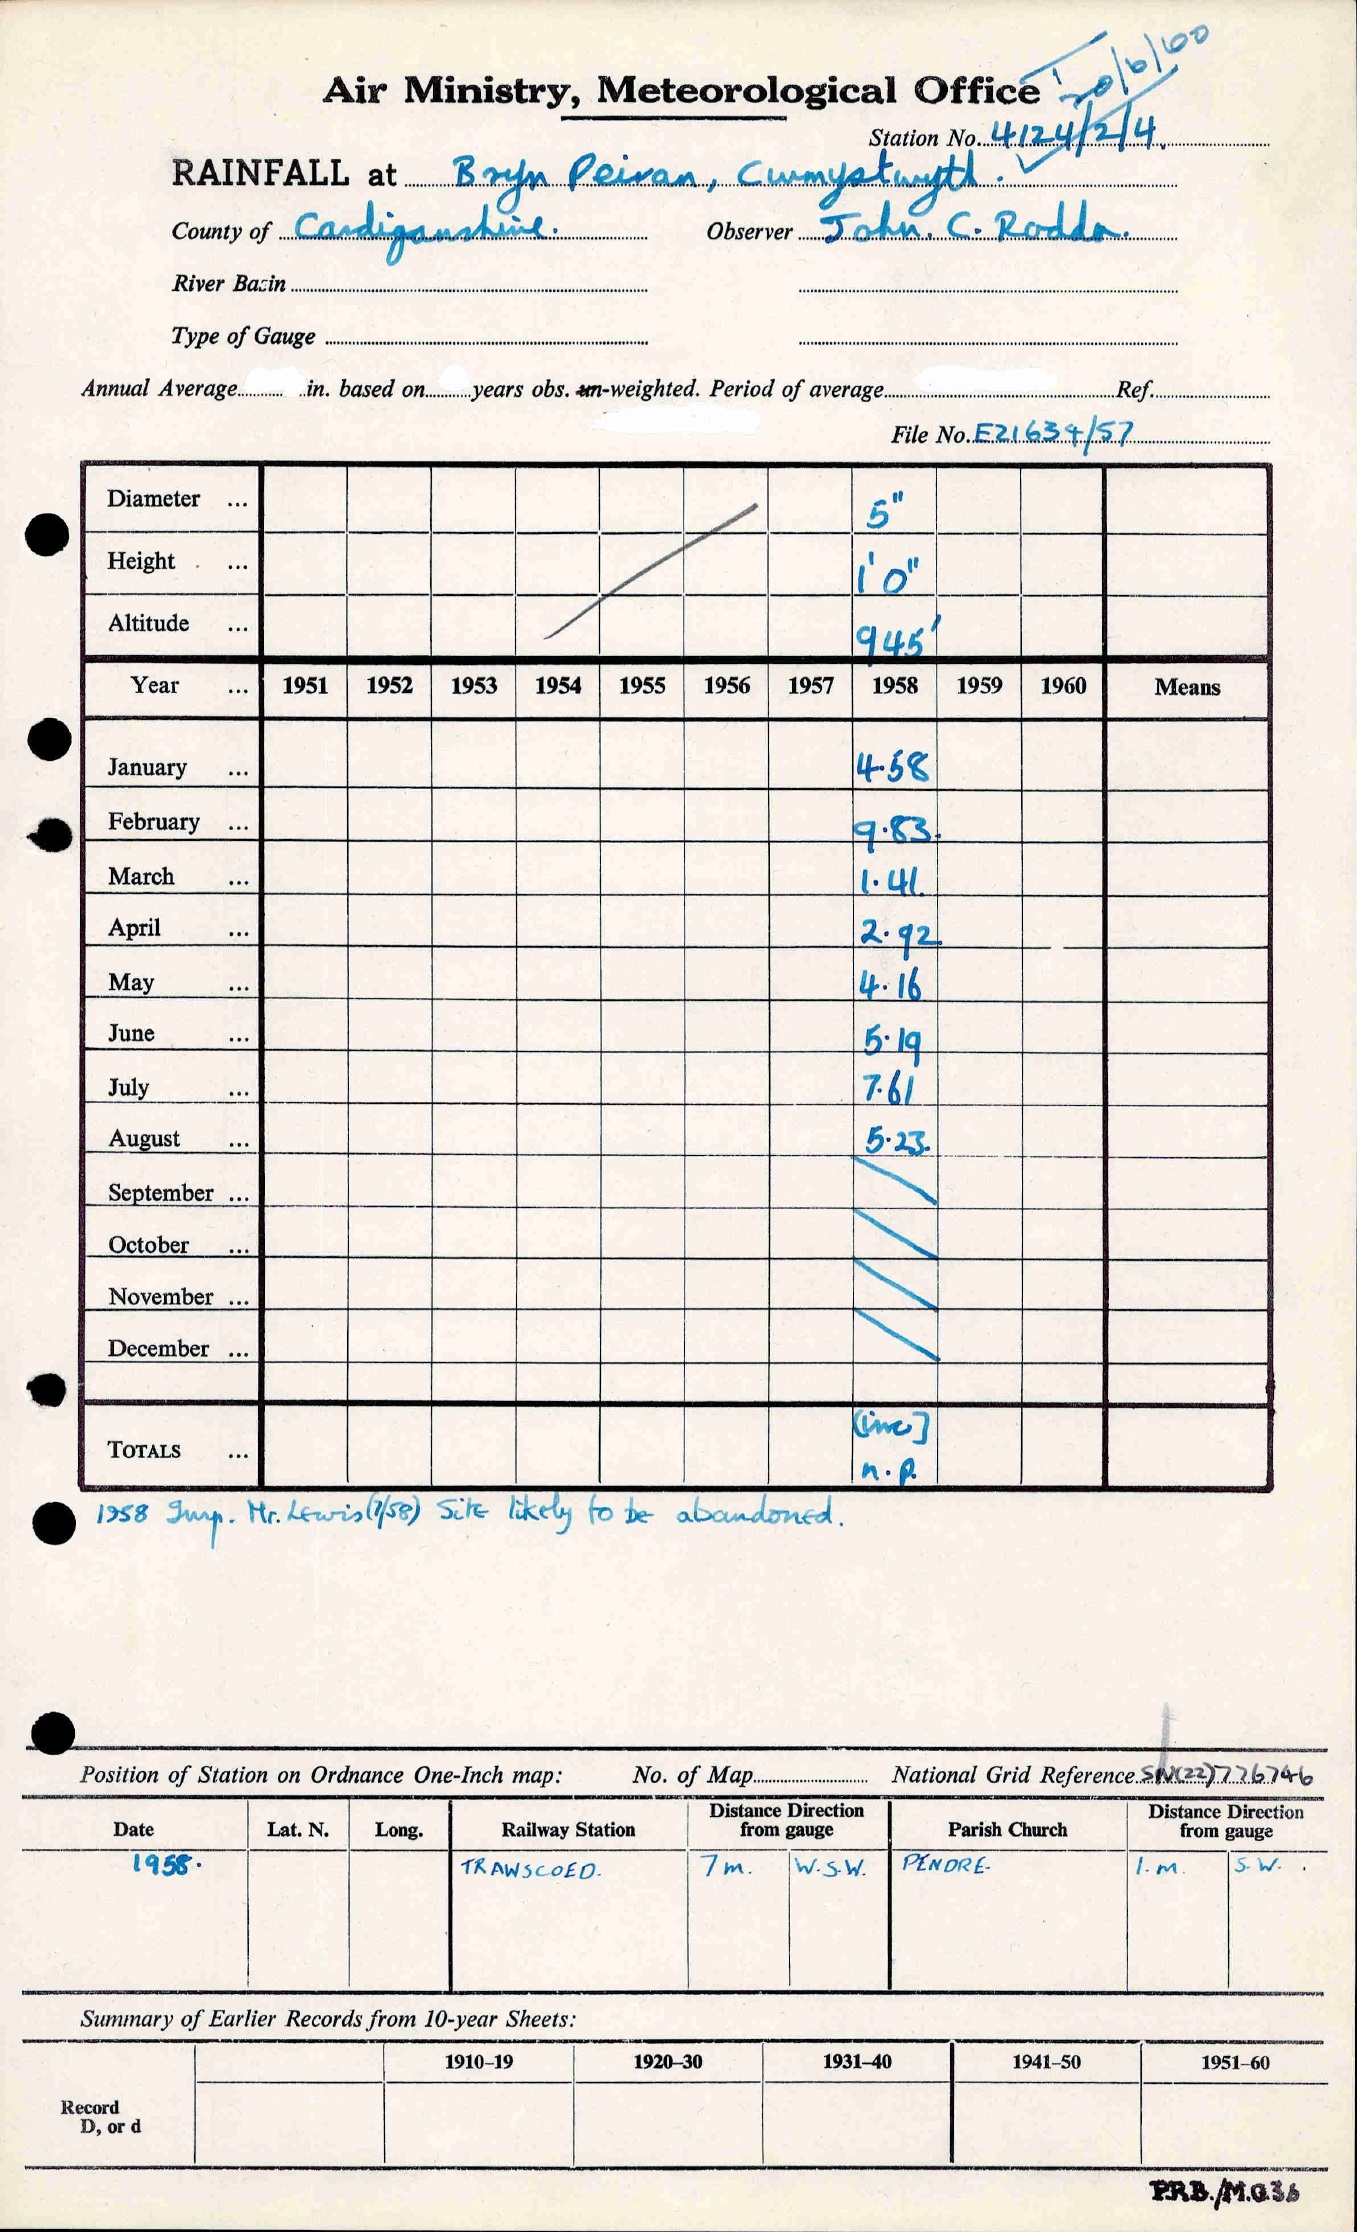 20/6/60
Air Ministry, Meteorological Office
Station No. 4124/2/4.
RAINFALL at Bryn Peiran, Cwmystwyth.
County of Cardiganshire. Observer John. C. Rodda.
River Basin
Type of Gauge
Annual Average in. based on years obs. un-weighted. Period of average Ref.
File No. E21634/57
Diameter ... 5"
Height ... 1' 0"
Altitude ... 945'
Year ... 1951 1952 1953 1954 1955 1956 1957 1958 1959 1960 Means
January ... 4.58
February ... 9.83.
March ... 1.41.
April ... 2.92
May ... 4.16
June ... 5.19
July ... 7.61
August ... 5.23.
September ...
October ...
November ...
December ...
(inc]
TOTALS ...
n.p.
1958 Insp. Mr. Lewis (7/58) Site likely to be abandoned.
Position of Station on Ordnance One-Inch map: No. of Map National Grid Reference SN(22)776746
Date Lat. N. Long. Railway Station Distance Direction from gauge Parish Church Distance Direction from gauge
1958. TRAWSCOED. 7 m. W.S.W. PENDRE. 1. m. S.W.
Summary of Earlier Records from 10-year Sheets:
1910–19 1920–30 1931–40 1941–50 1951–60
Record
D, or d
P.R.B./M.O.36